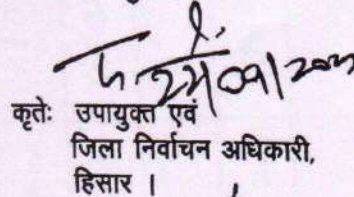 कृतेः उपायुक्त एवं
जिला निर्वाचन अधिकारी,
हिसार ।